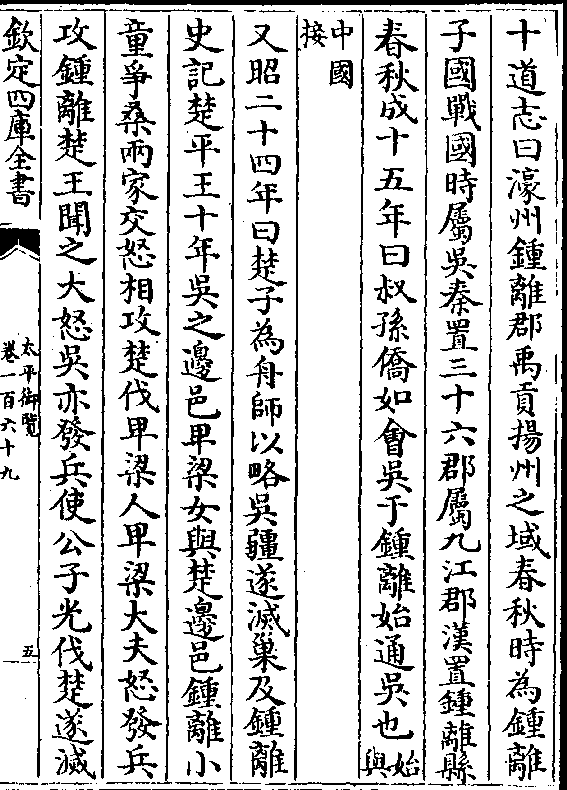 十道志曰濠州鍾離郡禹貢揚州之域春秋時為鍾離
子國戰國時屬吳秦置三十六郡屬九江郡漢置鍾離縣
春秋成十五年曰叔孫僑如會吳于鍾離始通吳也始與
中國接
又昭二十四年曰楚子為舟師以略吳疆遂滅巢及鍾離
史記楚平王十年吳之邊邑甲梁女與楚邊邑鍾離小
童爭桑兩家交怒相攻楚伐甲梁人甲梁大夫怒發兵
攻鍾離楚王聞之大怒吳亦發兵使公子光伐楚遂滅
欽定四庫全書
太平御覽
卷一百六十九
五